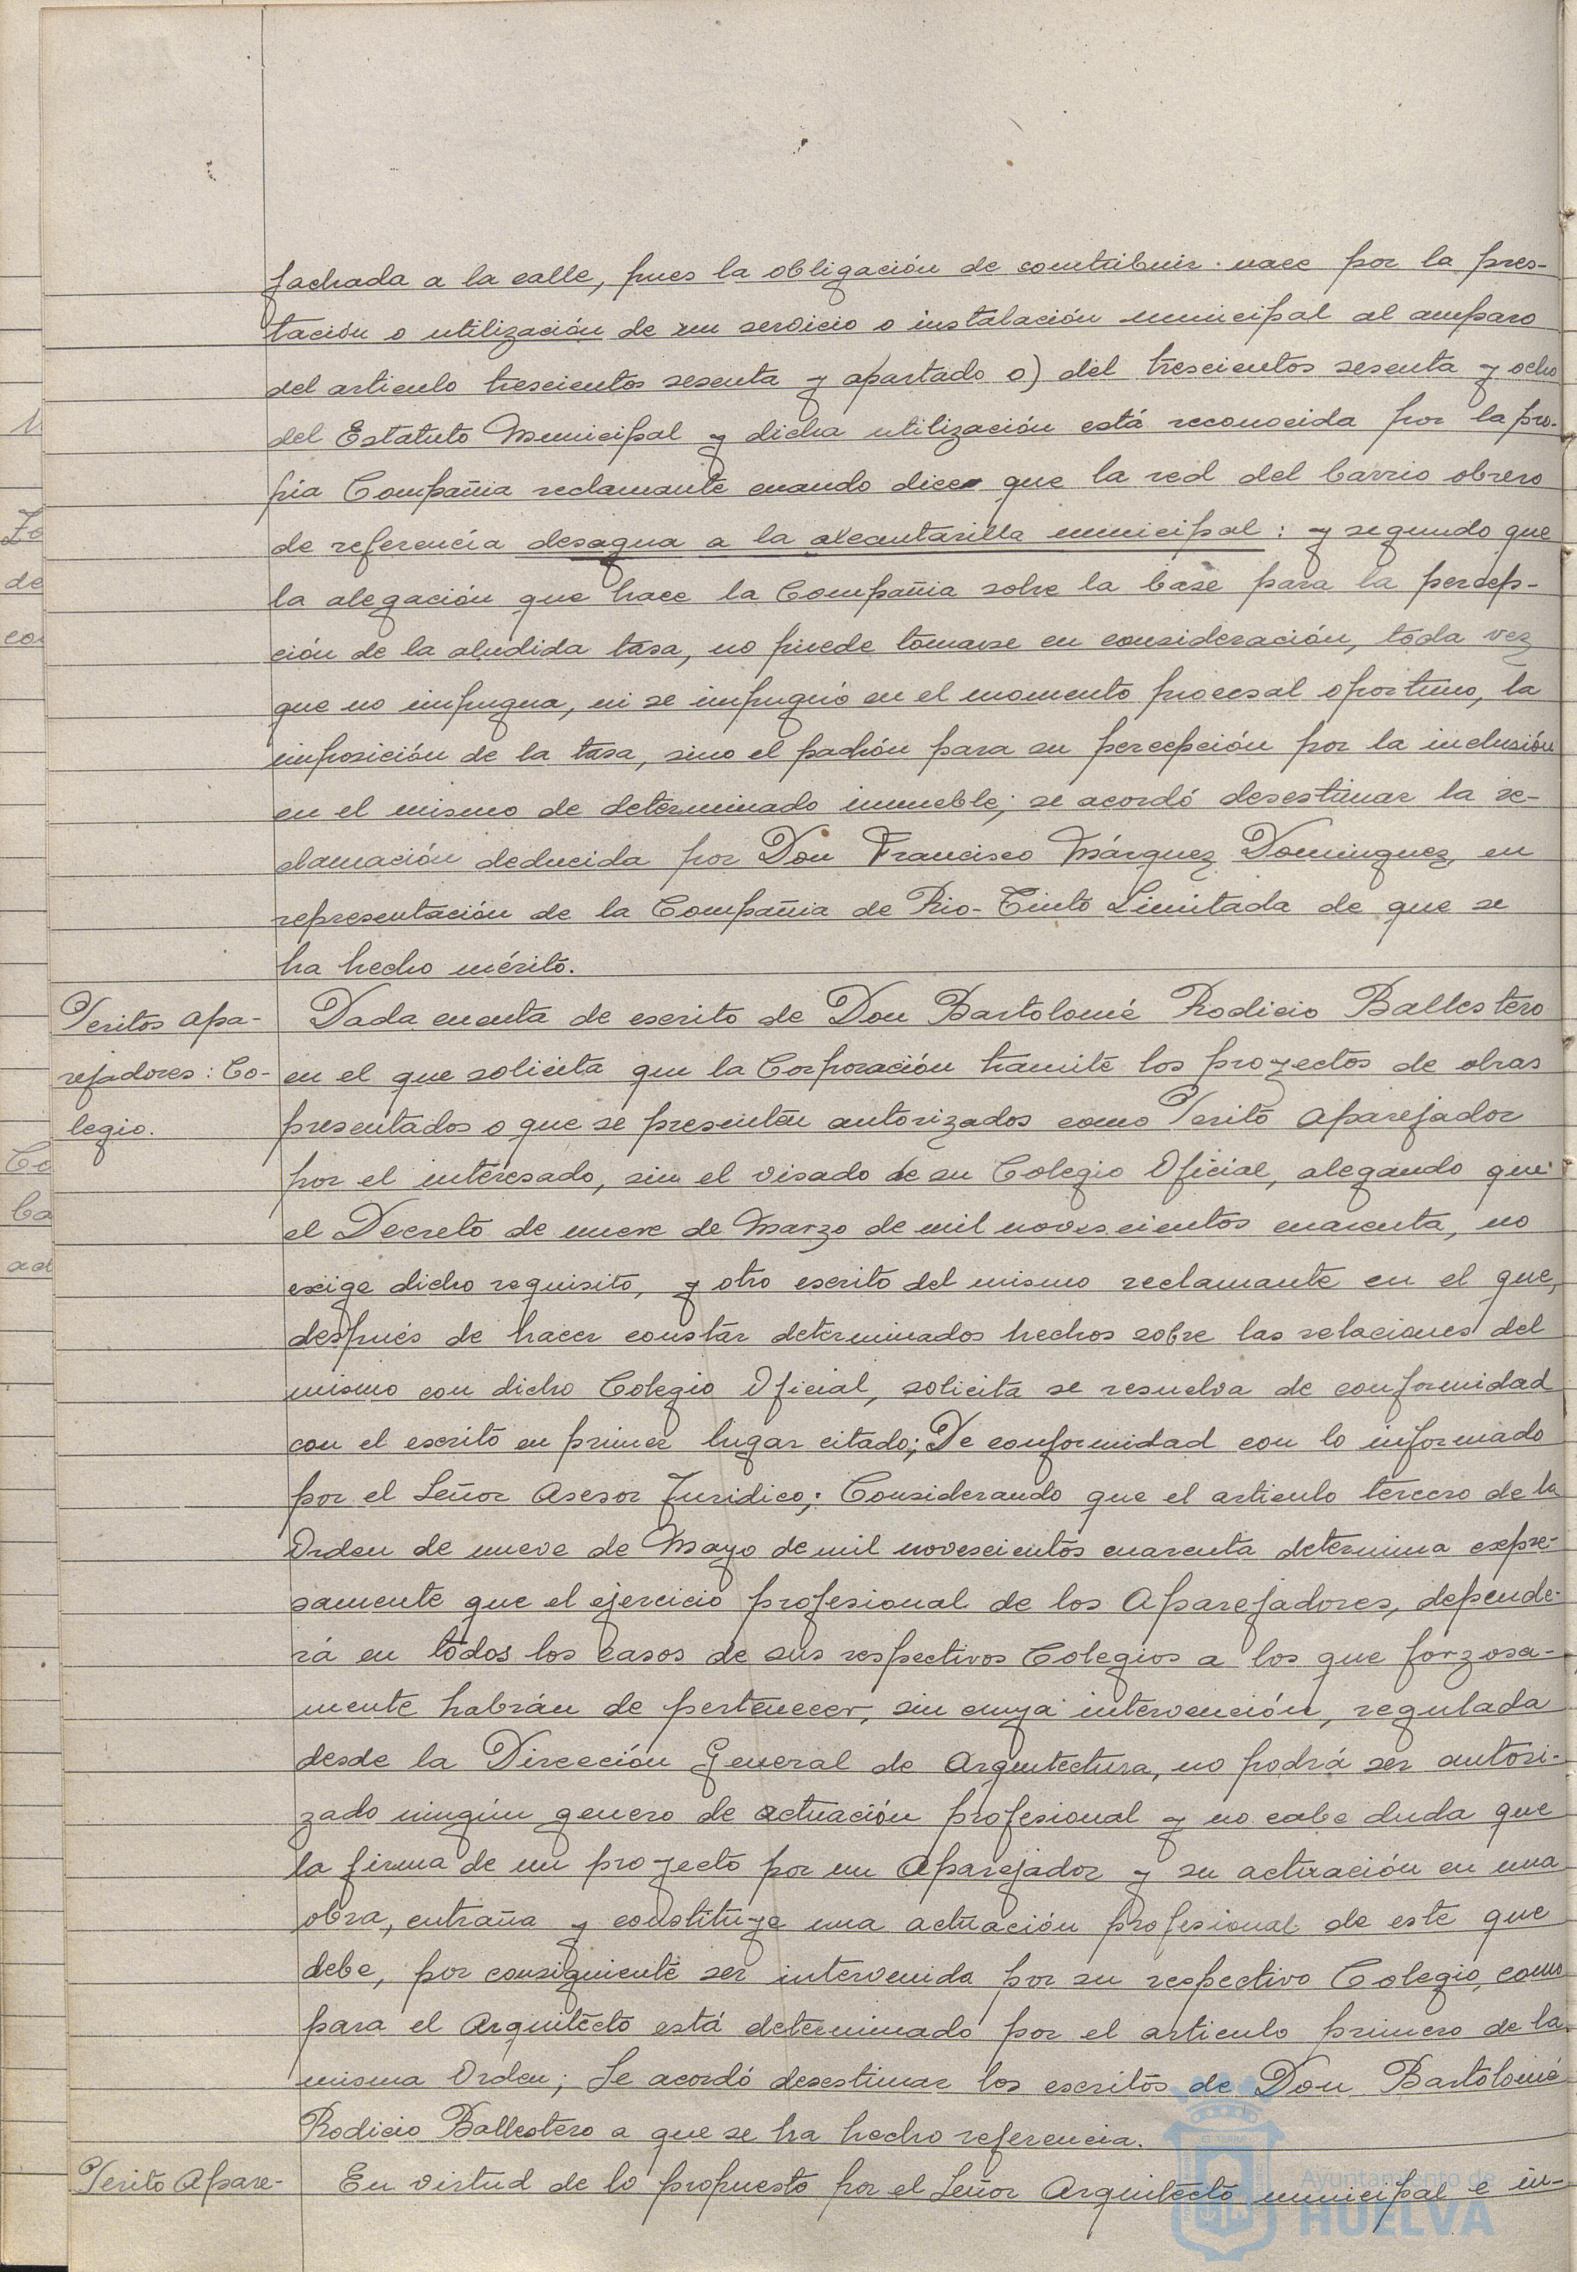 fachada a la calle, pues la obligación de contribuir nace por la pres-
tación o utilización de un servicio o instalación municipal al amparo
del articulo trescientos sesenta y apartado o) del trescientos sesenta y ocho
del Estatuto Municipal y dicha utilización está reconocida por la pro-
pia Compañia reclamante cuando dice que la red del barrio obrero
de referencia desagua a la alcantarilla municipal: y segundo que
la alegación que hace la Compañia sobre la base para la percep-
ción de la aludida tasa, no puede tomarse en consideración, toda vez
que no impugna, ni se impugnó en el momento procesal oportuno, la
imposición de la tasa, sino el padrón para su percepción por la inclusión
en el mismo de determinado inmueble; se acordó desestimar la re-
clamación deducida por Don Francisco Márquez Dominguez, en
representación de la Compañia de Rio-Tinto Limitada de que se
ha hecho mérito.
Peritos Apa-
rejadores: Co-
legio.
Dada cuenta de escrito de Don Bartolomé Rodicio Ballestero
en el que solicita que la Corporación tramite los proyectos de obras
presentados o que se presenten autorizados como Perito Aparejador
por el interesado, sin el visado de su Colegio Oficial, alegando que
el Decreto de nueve de Marzo de mil novescientos cuarenta, no
exige dicho requisito, y otro escrito del mismo reclamante en el que,
después de hacer constar determinados hechos sobre las relaciones del
mismo con dicho Colegio Oficial, solicita se resuelva de conformidad
con el escrito en primer lugar citado; De conformidad con lo informado
por el Señor Asesor Juridico; Considerando que el articulo tercero de la
Orden de nueve de Mayo de mil novescientos cuarenta determina expre-
samente que el ejercicio profesional de los Aparejadores, depende-
rá en todos los casos de sus respectivos Colegios a los que forzosa-
mente habrán de pertenecer, sin cuya intervención, regulada
desde la Dirección General de Arquitectura, no podrá ser autori-
zado ningún genero de actuación profesional y no cabe duda que
la firma de un proyecto por un Aparejador y su actuación en una
obra, entraña y constituye una actuación profesional de este que
debe, por consiguiente ser intervenida por su respectivo Colegio, como
para el Arquitecto está determinado por el articulo primero de la
misma Orden; Se acordó desestimar los escritos de Don Bartolomé
Rodicio Ballestero a que se ha hecho referencia.
Perito Apare-
En virtud de lo propuesto por el Señor Arquitecto municipal e in-
Ayuntamiento de
HUELVA